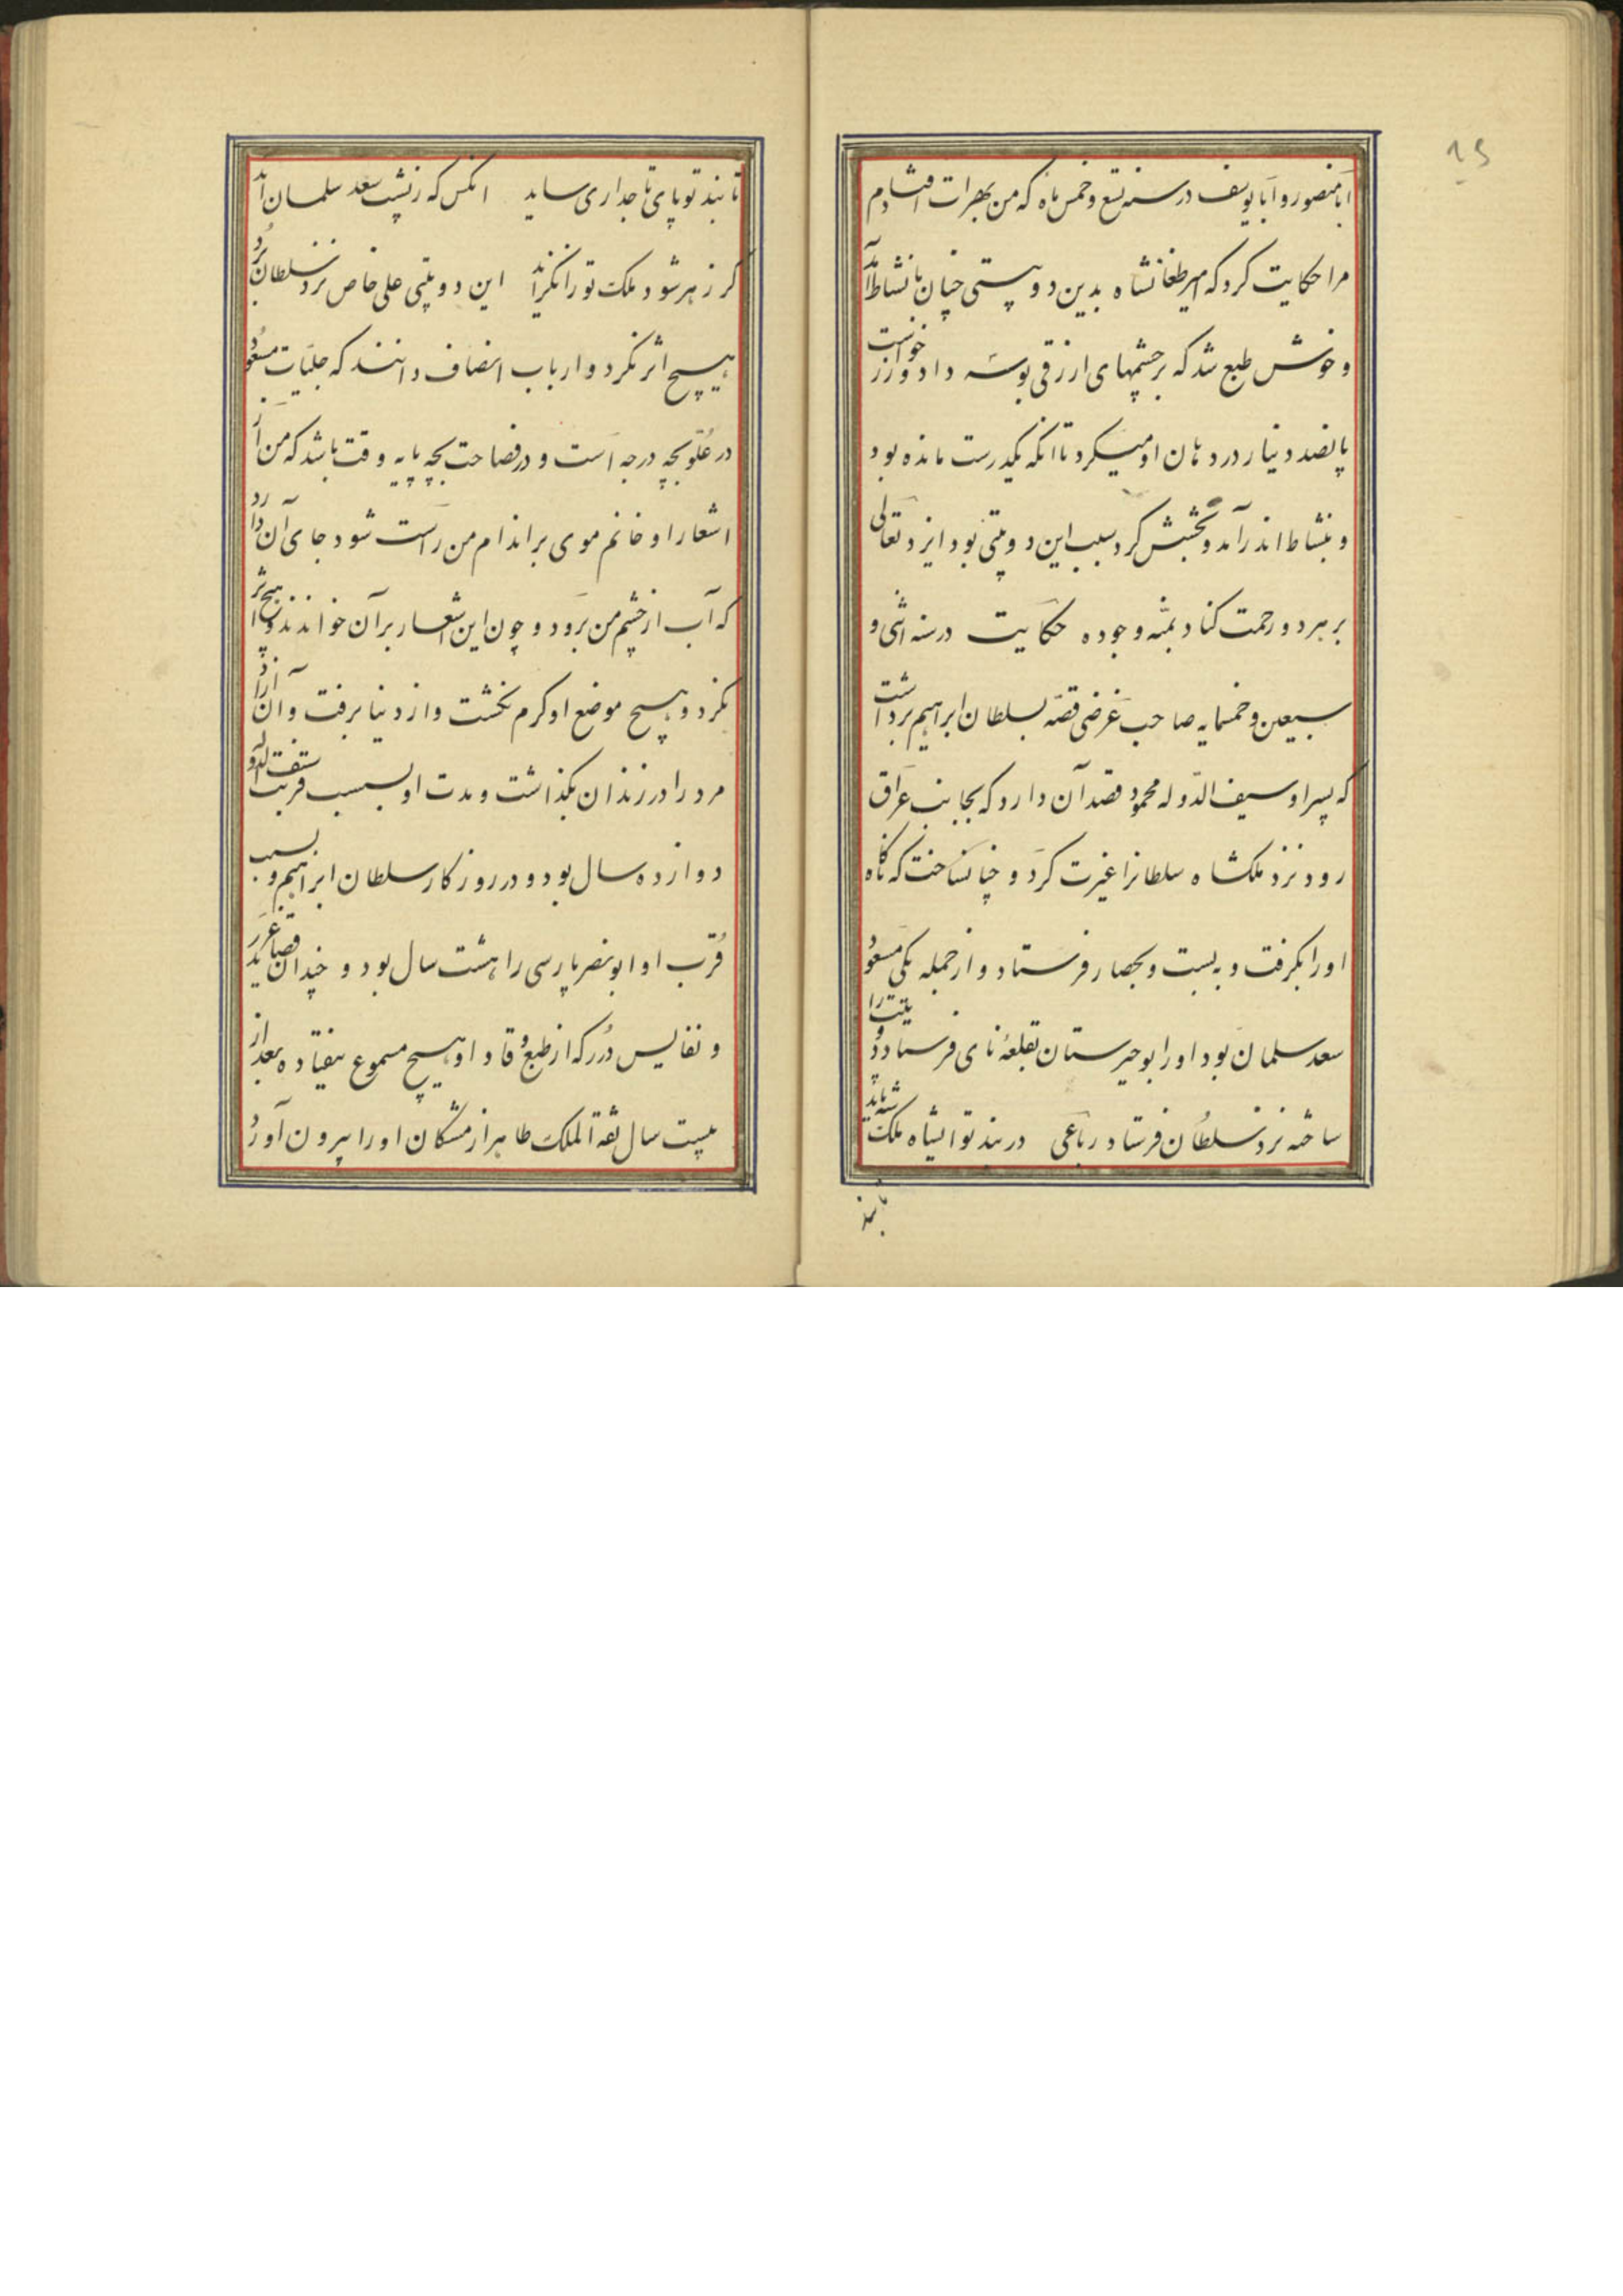 ابامنصور و ابایوسف در سنه تسع و خمس ماه که من بهرات افتادم
مرا حکایت کرد که امیر طغانشاه بدین دوبیتی چنان با نشاط آمد
و خوش طبع شد که بر چشمهای ازرقی بوسه داد و زر خواست
پانصد دینار در دهان او میکرد تا انکه یکدرست مانده بود
و بنشاط اندر آمد و بخشش کرد سبب این دوبیتی بود ایزد تعالی
بر هر دو رحمت کناد بمنه وجوده حکایت در سنه اثنی و
سبعین و خمسمایه صاحب غرضی قصه بسلطان ابراهیم برداشت
که پسر او سیف الدوله محمود قصد آن دارد که بجانب عراق
رود نزد ملکشاه سلطانرا غیرت کرد و چنان ساخت که ناگاه
او را بگرفت و ببست و بحصار فرستاد و از جمله یکی مسعود
سعد سلمان بود او را بوجیرستان بقلعه نای فرستاد دو بیت را
ساخته نزد سلطان فرستاد رباعی در بند تو ایشاه ملکشه باید
تا بند
تا بند تو پای تاجداری ساید انکس که ز پشت سعد سلمان آید
گر زهر شود ملک تو را نگزاید این دوبیتی علی خاص نزد سلطان برد
هیچ اثر نکرد و ارباب انصاف دانند که حبسیات مسعود
در علو بچه درجه است و در فصاحت بچه پایه وقت باشد که من از
اشعار او خوانم موی بر اندام من راست شود جای آن دارد
که آب از چشم من برود و چون این اشعار بر آن خواندند و هیچ اثر
نکرد و هیچ موضع او گرم نگشت و از دنیا برفت و آن آزاد
مرد را در زندان بگذاشت و مدت او بسبب قربت سیف الدوله
دوازده سال بود و در روزکار سلطان ابراهیم و بسبب
قرب او ابونصر پارسی را هشت سال بود و چندان قصاید غرر
و نفایس درر که از طبع وقاد او هیچ مسموع نیفتاده بعد از
بیست سال ثقة الملک طاهر از مشکان او را بیرون آورد